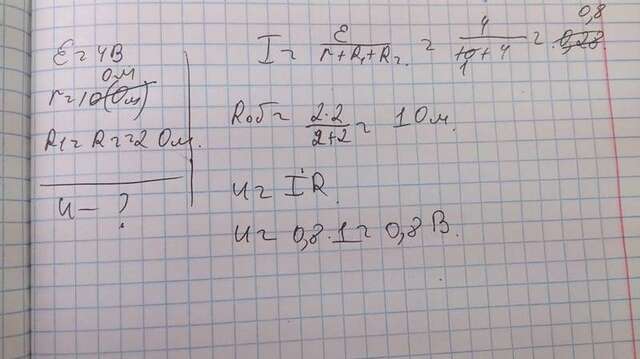 ε = 4 В
Ом
r = 10 (Ом)
R1 = R2 = 2 Ом.
u - ?
I = ε / (r + R1 + R2) = 4 / (10 + 4) = 0,28
1
0,8
Rоб = 2·2 / (2+2) = 1 Ом.
u = IR
u = 0,8 · 1 = 0,8 В.